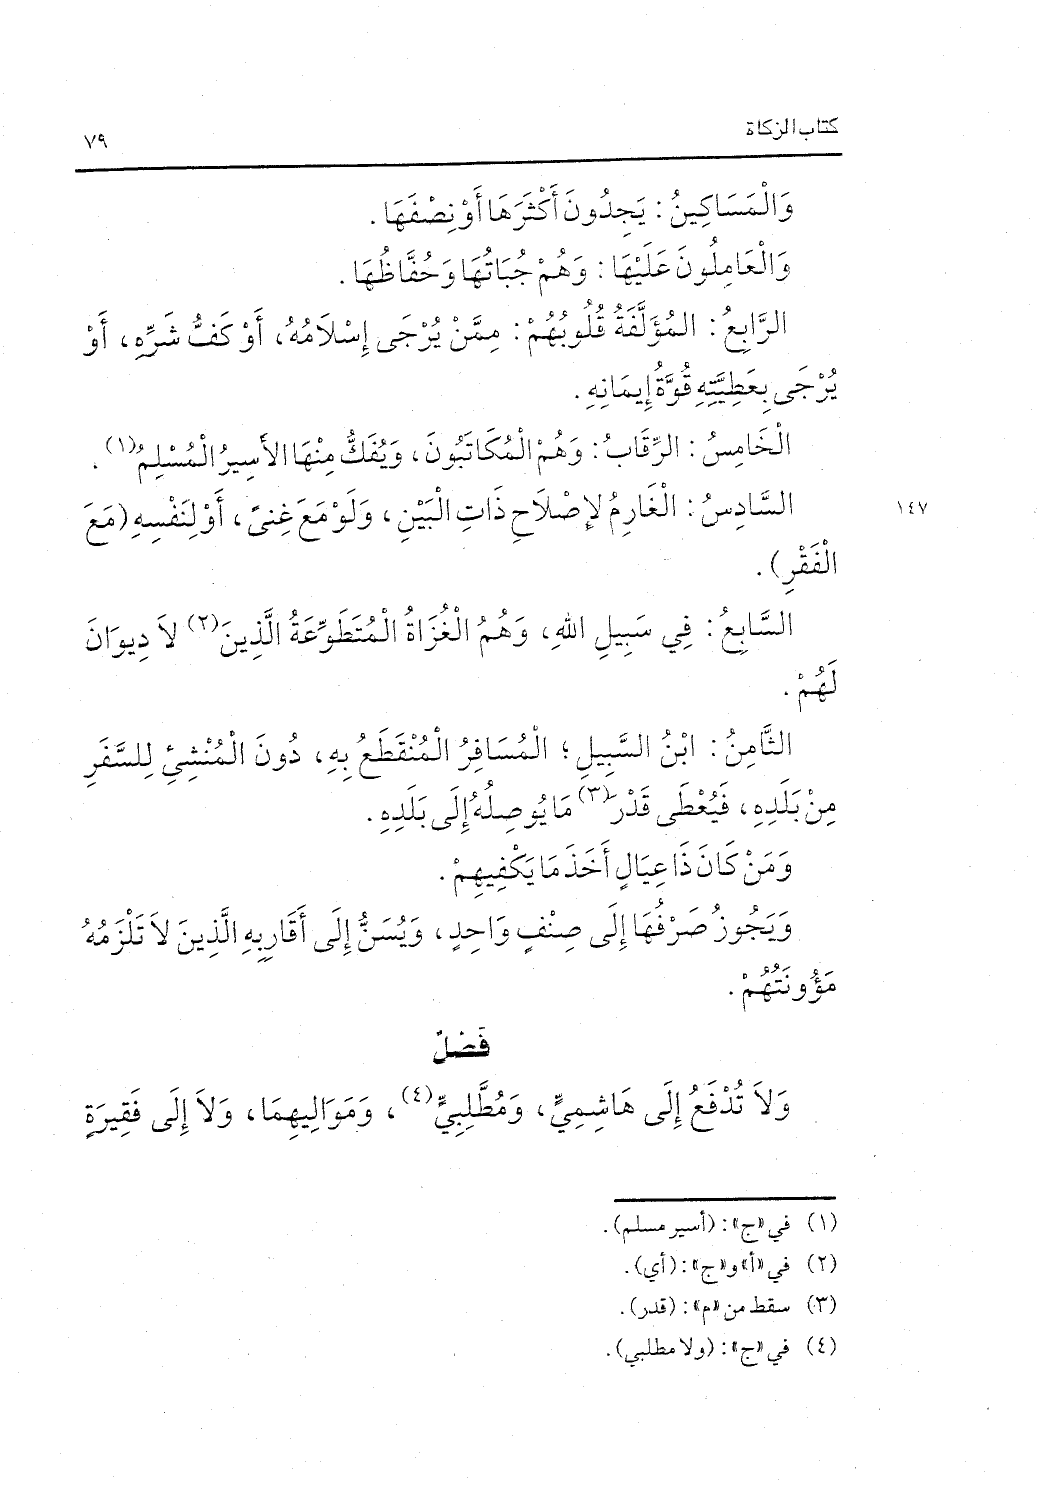 كتاب الزكاة
٧٩
وَالْمَسَاكِينُ: يَجِدُونَ أَكْثَرَهَا أَوْ نِصْفَهَا.
وَالْعَامِلُونَ عَلَيْهَا: وَهُمْ جُبَاتُهَا وَحُفَّاظُهَا.
الرَّابِعُ: المُؤَلَّفَةُ قُلُوبُهُمْ: مِمَّنْ يُرْجَى إِسْلَامُهُ، أَوْ كَفُّ شَرِّهِ، أَوْ
يُرْجَى بِعَطِيَّتِهِ قُوَّةُ إِيمَانِهِ.
الْخَامِسُ: الرِّقَابُ: وَهُمْ الْمُكَاتَبُونَ، وَيُفَكُّ مِنْهَا الأَسِيرُ الْمُسْلِمُ(١).
١٤٧
السَّادِسُ: الْغَارِمُ لإِصْلَاحِ ذَاتِ الْبَيْنِ، وَلَوْ مَعَ غِنىً، أَوْ لِنَفْسِهِ (مَعَ
الْفَقْرِ).
السَّابِعُ: فِي سَبِيلِ اللهِ، وَهُمُ الْغُزَاةُ الْمُتَطَوِّعَةُ الَّذِينَ(٢) لاَ دِيوَانَ
لَهُمْ.
الثَّامِنُ: ابْنُ السَّبِيلِ؛ الْمُسَافِرُ الْمُنْقَطَعُ بِهِ، دُونَ الْمُنْشِئِ لِلسَّفَرِ
مِنْ بَلَدِهِ، فَيُعْطَى قَدْرَ(٣) مَا يُوصِلُهُ إِلَى بَلَدِهِ.
وَمَنْ كَانَ ذَا عِيَالٍ أَخَذَ مَا يَكْفِيهِمْ.
وَيَجُوزُ صَرْفُهَا إِلَى صِنْفٍ وَاحِدٍ، وَيُسَنُّ إِلَى أَقَارِبِهِ الَّذِينَ لاَ تَلْزَمُهُ
مَؤُونَتُهُمْ.
فَصْلٌ
وَلاَ تُدْفَعُ إِلَى هَاشِمِيٍّ، وَمُطَّلِبِيٍّ(٤)، وَمَوَالِيهِمَا، وَلاَ إِلَى فَقِيرَةٍ
(١) في «ج»: (أسير مسلم).
(٢) في «أ» و«ج»: (أي).
(٣) سقط من «م»: (قدر).
(٤) في «ج»: (ولا مطلبي).